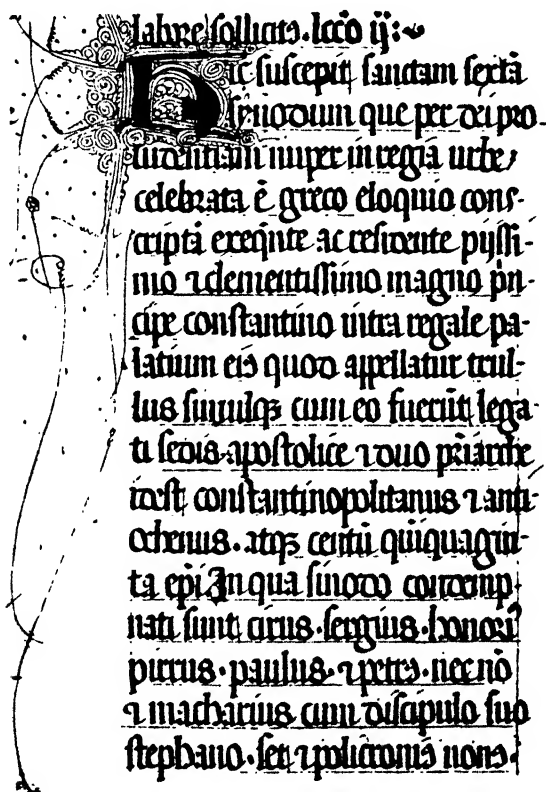 labiɼe sollicitꝰ. lcc̄o ij:
Hic suscepit sanctam sextā
synodum que per dei pro-
uidentiam nuper in regia urbe
celebrata ē greco eloquio cons-
criptā exeq̄nte ac residente pijssi-
mo ⁊ clementissimo magno p̄n-
cipe constantino intra regale pa-
latium eiꝰ quod appellatur trul-
lus simulqꝫ cum eo fuerūt lega-
ti sedis apostolice ⁊ duo pr̄iarche
idest constantinopolitanus ⁊ anti-
ochenus. atqꝫ centū quīquagin-
ta ep̄i In qua sinodo contemp-
nati sunt cirus. sergius. honoriꝰ
pirrus. paulus. ⁊ petrꝰ. necnō
⁊ macharius cum discipulo suo
stephano. set ⁊ policroniꝰ nouꝰ